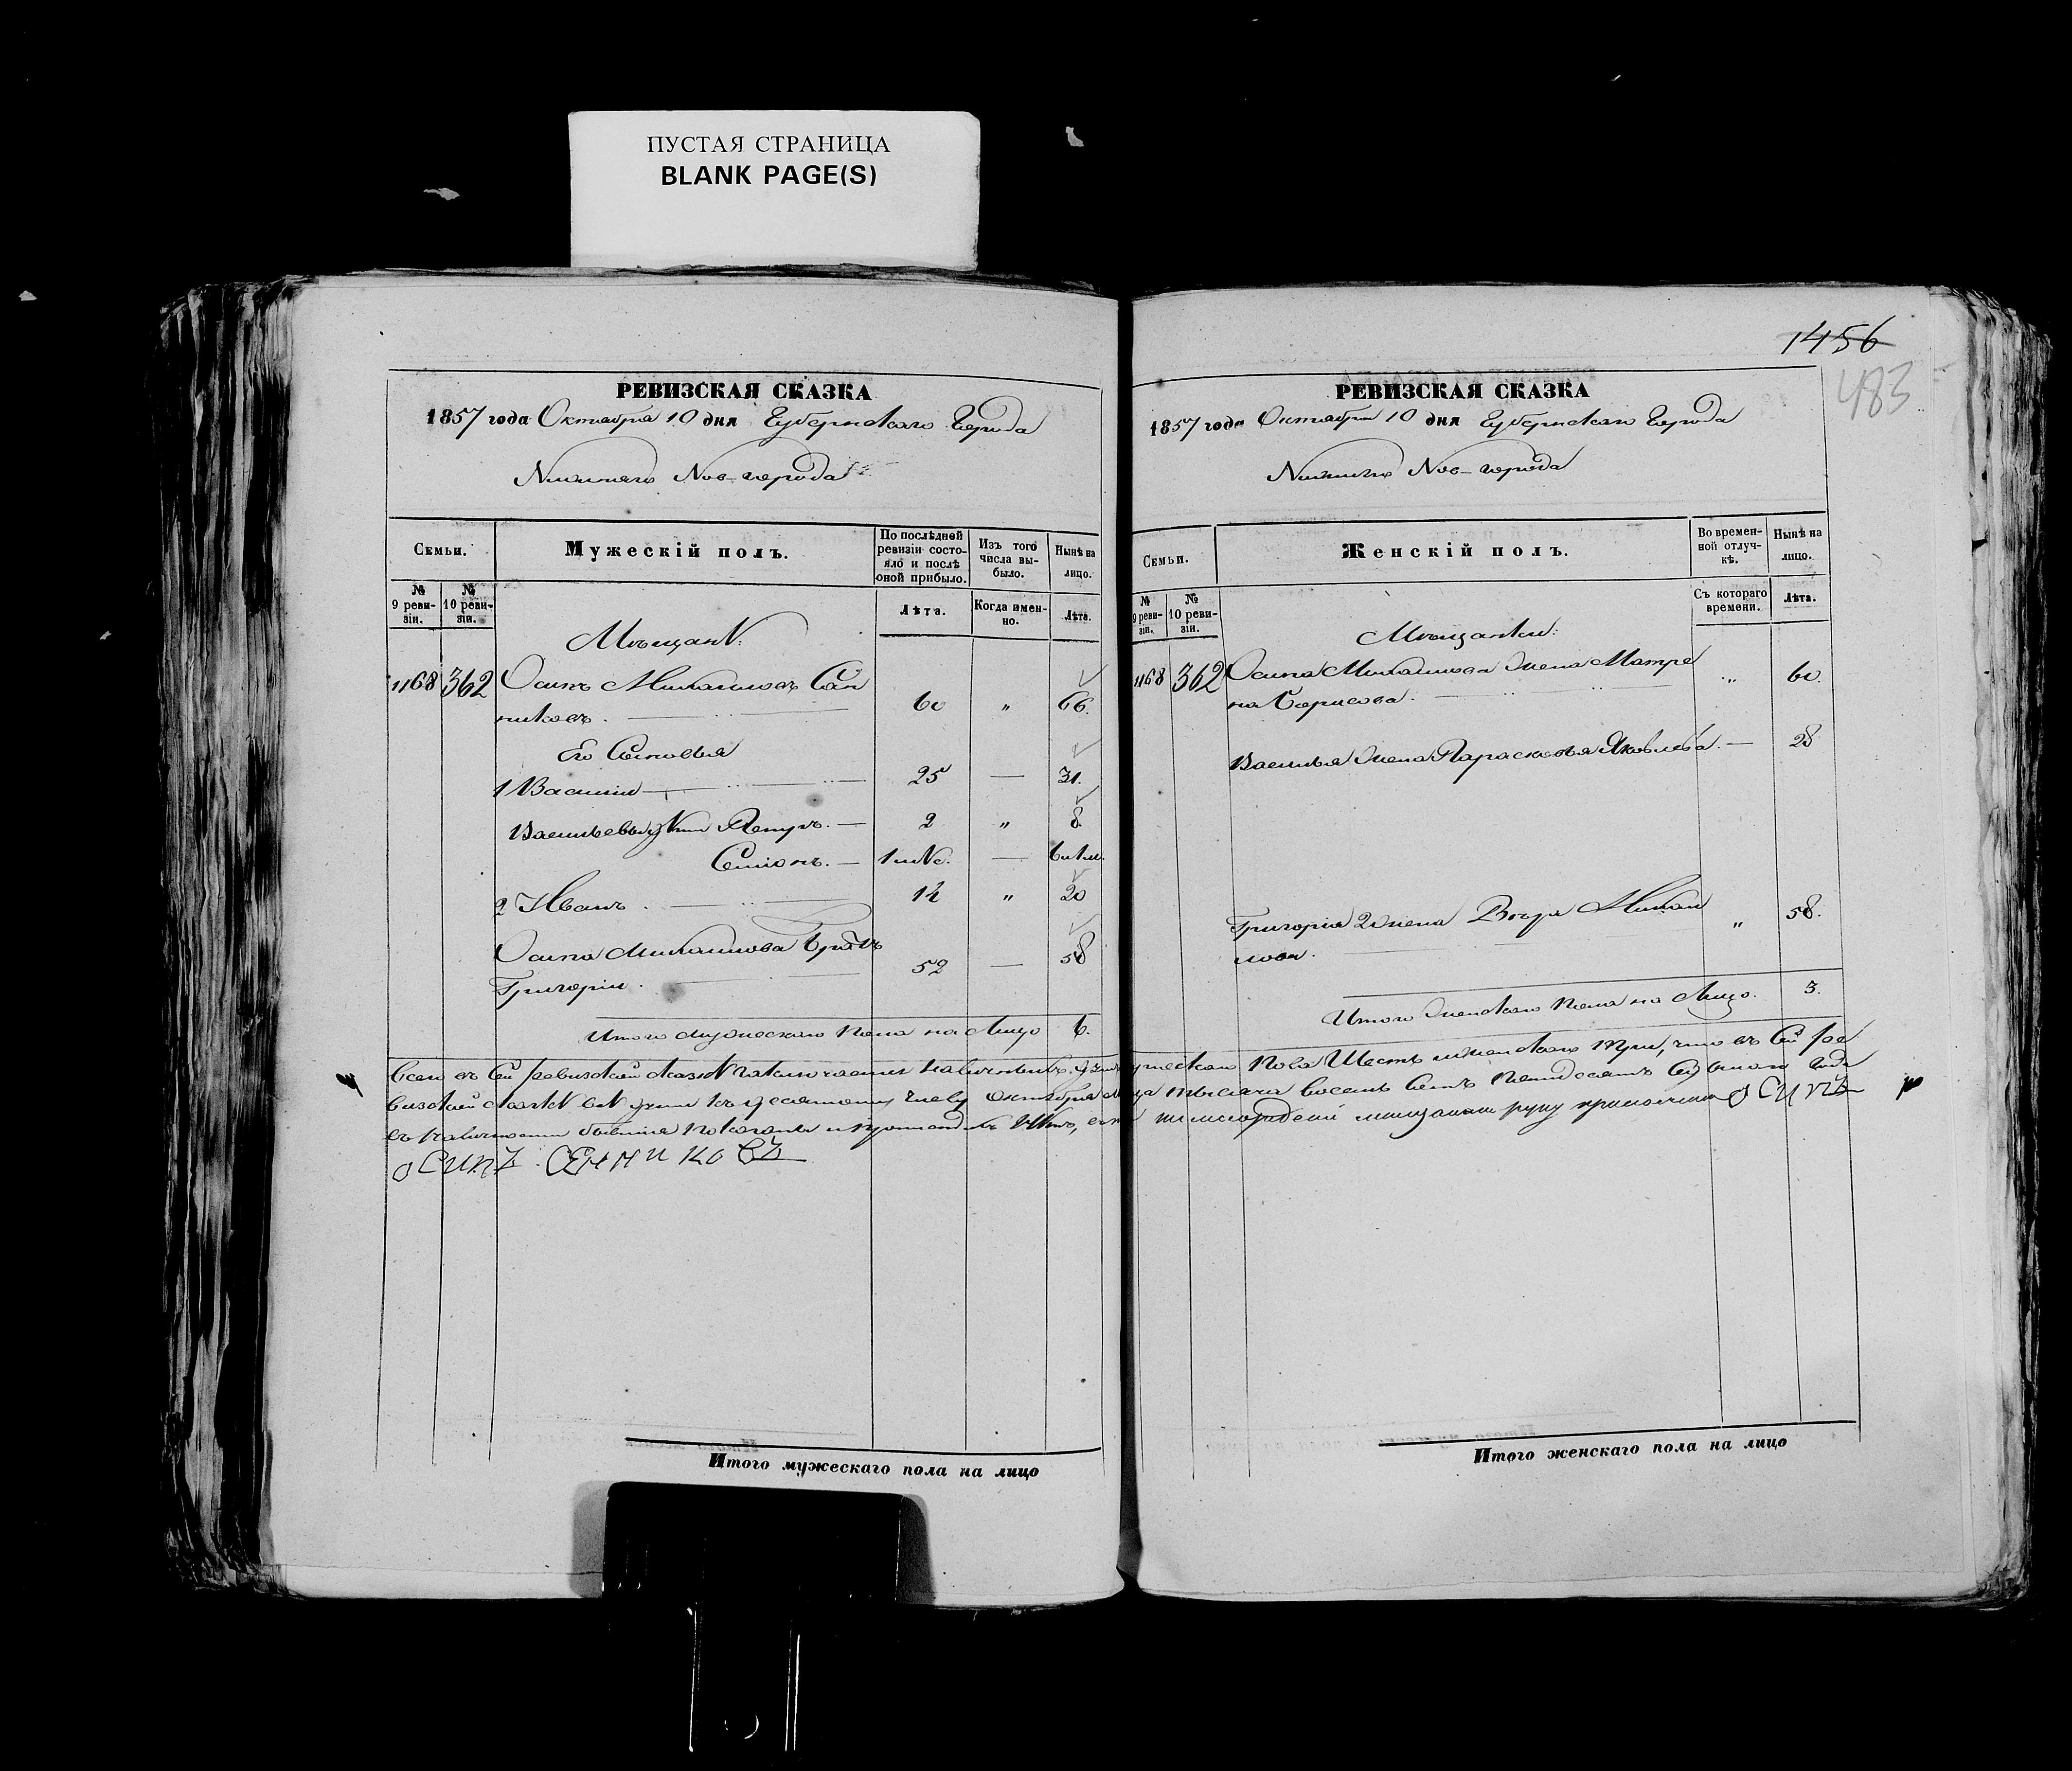 ПУСТАЯ СТРАНИЦА
BLANK PAGE(S)
РЕВИЗСКАЯ СКАЗКА
1857 года Октября 10 дня Губернскаго Города
Нижняго Нов-города
Семьи.
Мужескій полъ.
По послѣдней ревизіи состояло и послѣ оной прибыло.
Изъ того числа выбыло.
Нынѣ на лицо.
№ 9 ревизіи.
№ 10 ревизіи.
Лѣта.
Когда именно.
Лѣта.
Мѣщане:
1168 362 Осипъ Михайловъ Сѣн
никовъ. 60 „ 66.
Его Сыновья
1 Василій 25 — 31.
Васильевы дѣти Петръ. — 2 „ 8
Семіонъ. —
2 Иванъ. 14 „ 20
Осипа Михайлова братъ
Григорій. 52 — 58
Итого мужескаго пола на лицо 6.
1456
483
РЕВИЗСКАЯ СКАЗКА
1857 года Октября 10 дня Губернскаго Города
Нижняго Нов-города
Семьи.
Женскій полъ.
Во временной отлучкѣ.
Нынѣ на лицо.
№ 9 ревизіи.
№ 10 ревизіи.
Съ котораго времени.
Лѣта.
Мѣщанки:
1168 362 Осипа Михайлова жена Матре
на Борисова. „ 60.
Василья жена Парасковья Яковлева. — 28
Григорія 2 жена Вѣра Михай
лова. „ 58.
Итого женскаго пола на лицо. 3.
Всего въ сей ревизской сказкѣ заключается наличныхъ мужеска пола шесть и женскаго три, что въ сей ре
визской сказкѣ всѣ души къ десятому числу октября м-ца тысяча восемь сотъ пятдесятъ седьмаго года
въ наличности бывшія показаны и въ томъ руку приложилъ осипъ
осипъ сенниковъ
Итого мужескаго пола на лицо
Итого женскаго пола на лицо